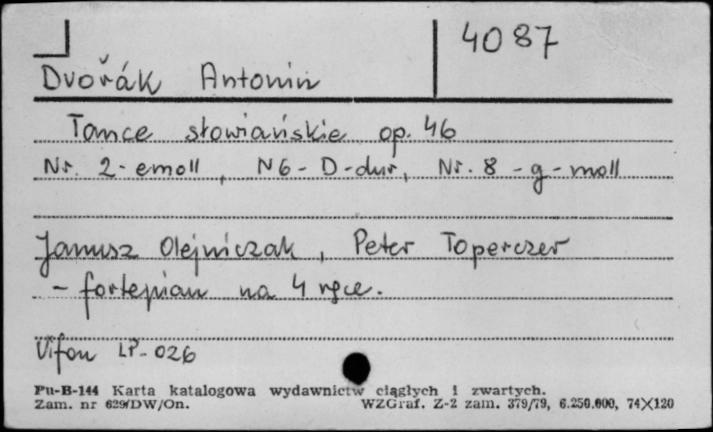 4087
Dvořák Antonin
Tańce słowiańskie op. 46
Nr. 2 - emoll, N6 - D-dur, Nr. 8 - g-moll
Janusz Olejniczak, Peter Toperczer
- fortepian na 4 ręce.
Vifon LP-026
Pu-B-144 Karta katalogowa wydawnictw ciągłych i zwartych.
Zam. nr 629/DW/On. WZGraf. Z-2 zam. 379/79, 6.250.000, 74X120